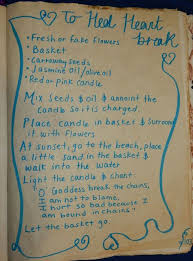 To Heal Heart
break
• Fresh or Fake Flowers
• Basket
• Carroway seeds
• Jasmine Oil/olive oil
• Red or pink candle
Mix Seeds & oil & annoint the
Candle so it is charged.
Place candle in basket & Surround
it with Flowers
At sunset, go to the beach, place
a little sand in the basket &
walk into the water
Light the candle & chant
"O' Goddess break the chains,
I am not to blame,
I hurt so bad because I
am bound in chains"
Let the basket go.